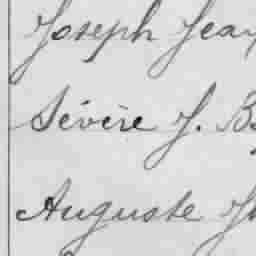 Joseph Jean
Sévère J. B
Auguste Jh